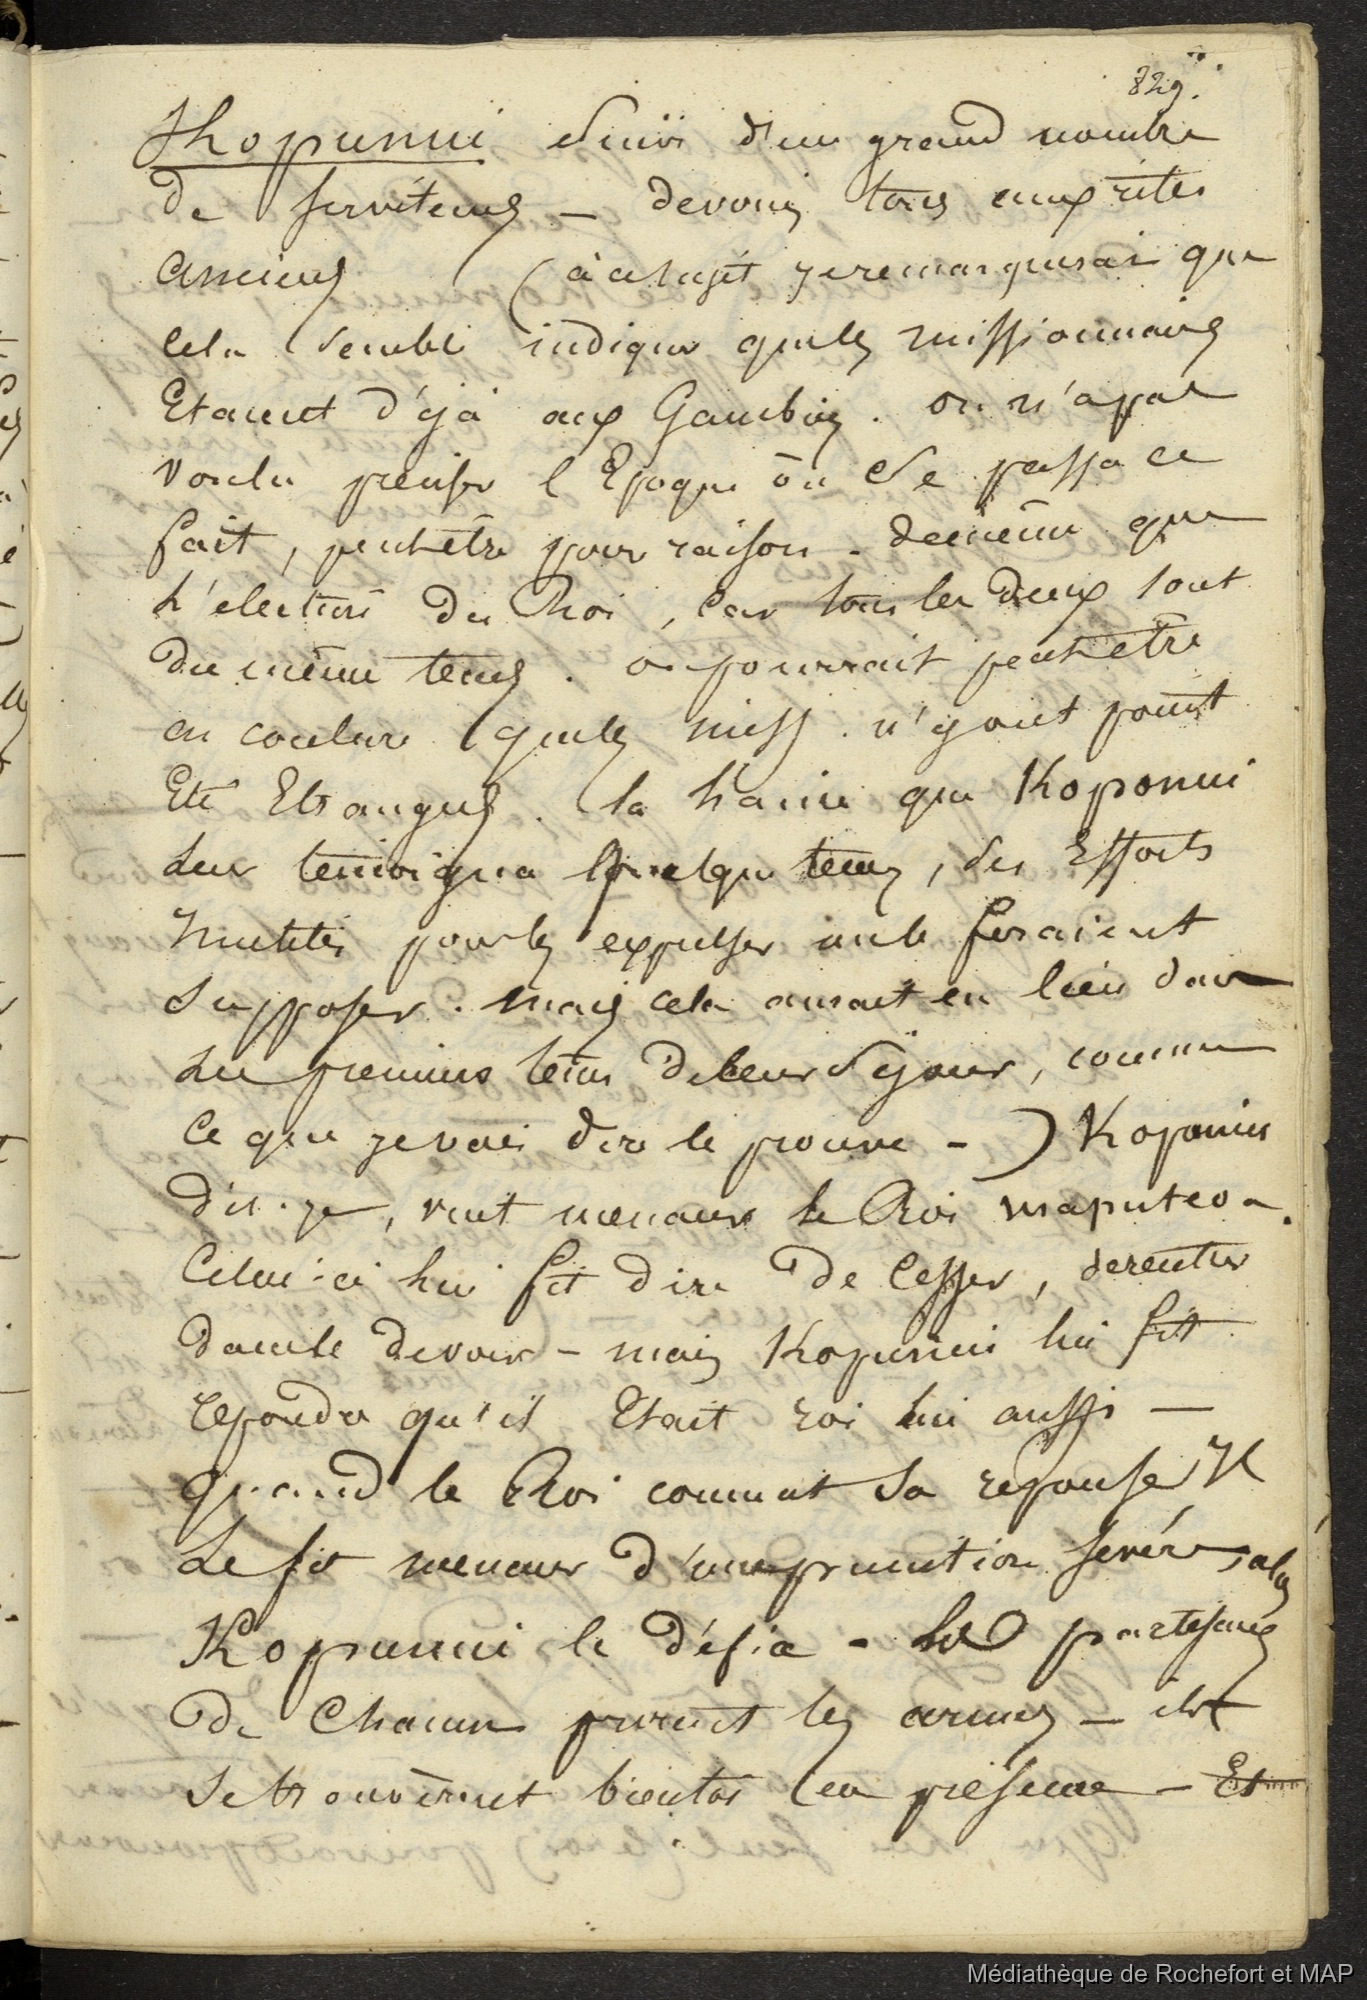 829.
Kopunui Suivi d'un grand nombre
de serviteurs – devoués tous aux rites
anciens (à ce sujet je remarquerai que
cela semble indiquer que les missionnaires
Etaient d'éjà aux Gambier. on n'a pas
voulu préciser l'Epoque où Se passa ce
fait, peutêtre pour raison – de même que
L'election du Roi, car tous les deux sont
du même tems. on pourrait peut être
en conclure que les miss. n'y ont point
Eté Etrangers. la haine que Koponui
Leur temoigna quelque tems, Ses Efforts
Inutiles pour les expulser me le feraient
Supposer. mais cela aurait eu lieu dans
Les premiers tems de leur Séjour, comme
Ce que je vais dire le prouve –) Koponui
dis-je, vint menacer le Roi maputeoa.
Celui-ci lui fit dire de Cesser, de rentrer
dans le devoir – mais Kopunui lui fit
repondre qu'il Etait roi lui aussi —
quand le Roi connut Sa reponse Il
Le fit menacer d'une punition sevère, alors
Kopunui le défia – les partisans
de Chacun prirent les armes – et
Se trouvèrent bientôt en présence – Et
Médiathèque de Rochefort et MAP